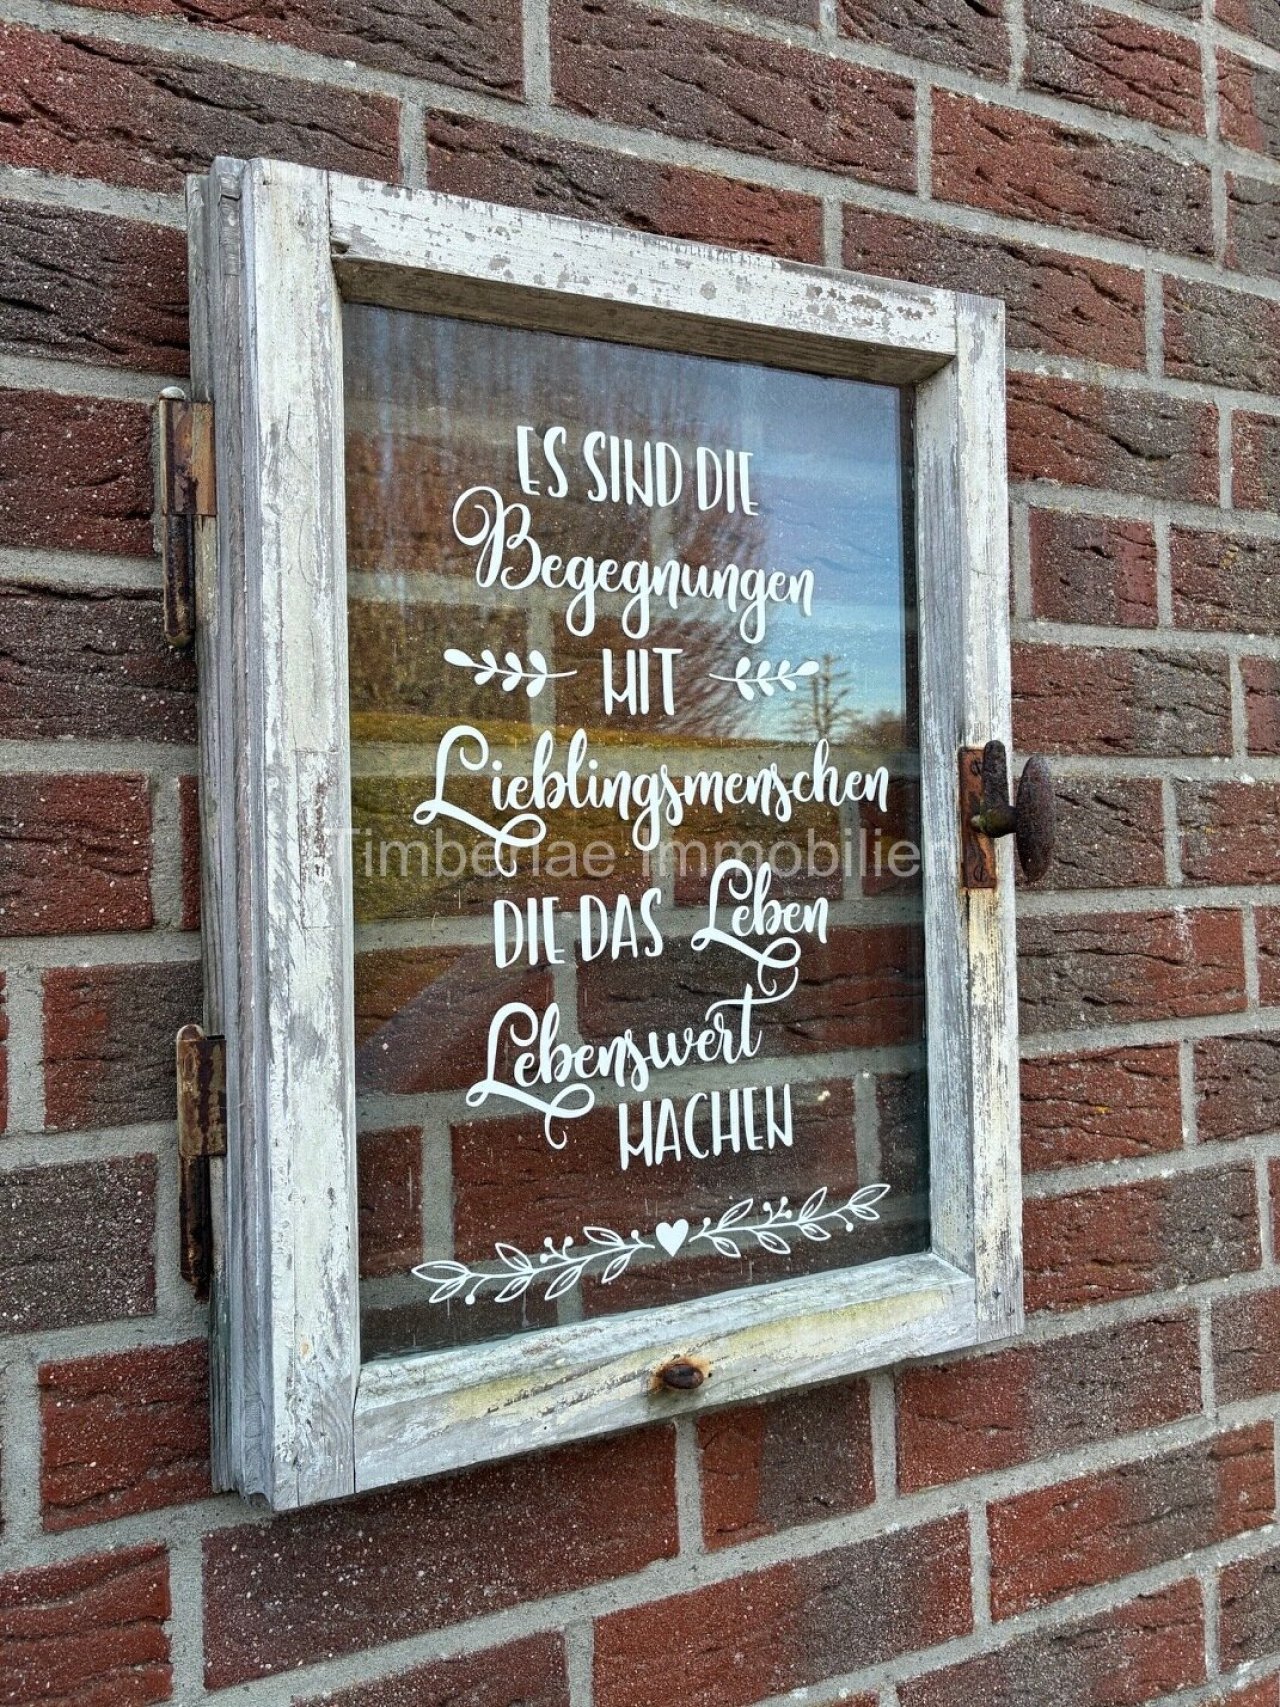 ES SIND DIE
Begegnungen
MIT
Lieblingsmenschen
Timberlae Immobilien
DIE DAS Leben
Lebenswert
MACHEN